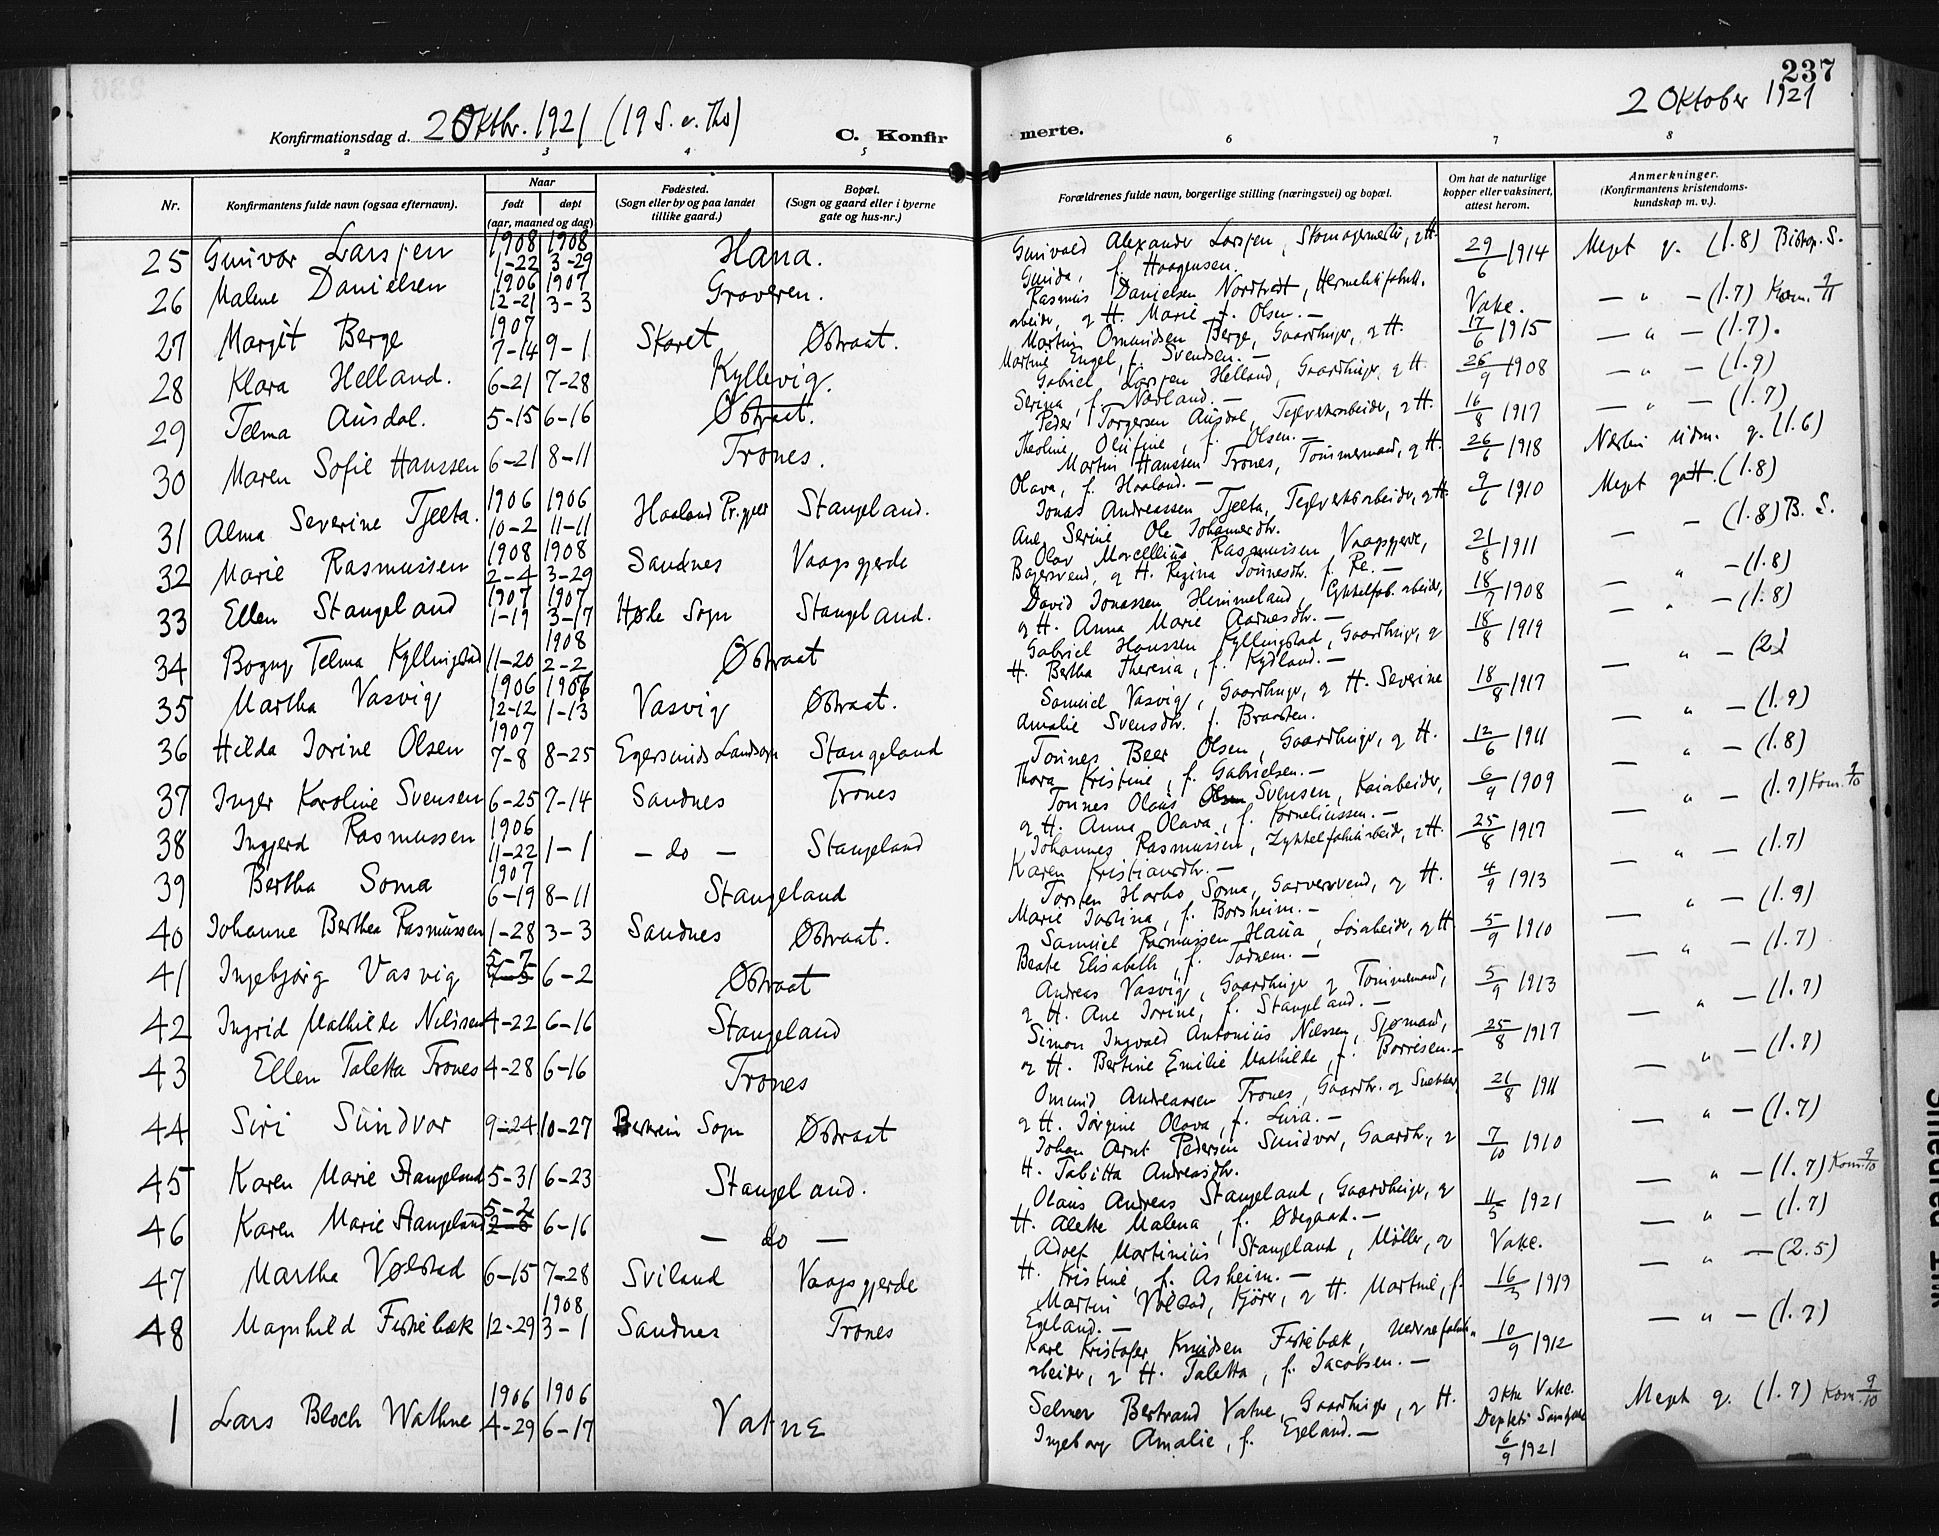 237
2 Oktober 1921
Konfirmationsdag d. 2 Oktbr. 1921 (19 S. e. Ths)
C. Konfirmerte.
2 3 4 5 6 7 8
Nr.
Konfirmantens fulde navn (ogsaa efternavn).
Naar
født døpt
(aar, maaned og dag)
Fødested.
(Sogn eller by og paa landet
tillike gaard.)
Bopæl.
(Sogn og gaard eller i byerne
gate og hus-nr.)
Forældrenes fulde navn, borgerlige stilling (næringsvei) og bopæl.
Om hat de naturlige
kopper eller vaksinert,
attest herom.
Anmerkninger.
(Konfirmantens kristendoms-
kundskap m. v.).
25 Gunvor Larsen 1908 1-22 1908 3-29 Hana. Gunvald Alexander Larsen, H. 29/6 1914 Meget g. (1.8) Bisop. S.
Gunda, f. Haagensen.
26 Malene Danielsen 1906 12-21 1907 3-3 Graveren. Rasmus Danielsen Nordtvedt, Hermetikfabrik. Vakc. — " — (1.7) Kom.
arbeider, og H. Marie f. Olsen. —
27 Margit Berge 1907 7-14 9-1 Skaret Østraat. Martin Omundsen Berge, Gaardbruger, og H. 17/6 1915 — " — (1.7).
Martine Engel, f. Svendsen. —
28 Klara Helland. 6-21 7-28 Kyllevig. Gabriel Larsen Helland, Gaardbruger, og H. 26/9 1908 — " — (1.9)
Serina, f. Nødland. —
29 Telma Ausdal. 5-15 6-16 Østraat. Peder Torgersen Ausdal, Teglverksarbeider, og H. 16/8 1917 — " — (1.7)
Theoline Olufine, f. Olsen. —
30 Maren Sofie Hanssen 6-21 8-11 Trones. Martin Hanssen Trones, Tømmermand, og H. 26/6 1918 Næsten udm. g. (1.6)
Olava, f. Haaland. —
31 Alma Severine Tjelta. 1906 10-2 1906 11-11 Haaland Pr.gjeld Stangeland. Jonas Andreassen Tjelta, Teglverksarbeider, og H. 9/6 1910 Meget godt. (1.8)
Ane Serine Ole Johannesdtr.
32 Marie Rasmussen 1908 2-4 1908 3-29 Sandnes Vaagsgjerde Olav Marcellius Rasmussen Vaagsgjerde, 21/8 1911 — — (1.8) B. S.
Bagersvend, og H. Regina Tønnesdtr. f. Re. —
33 Ellen Stangeland 1907 1-19 1907 3-17 Høle Sogn Stangeland. David Jonassen Himmeland, Cykkelfab.arbeider, 18/9 1908 — " — (1.8)
og H. Anna Marie Aadnesdtr. —
34 Bogny Telma Kyllingstad 11-20 1908 2-2 Østraat Gabriel Hanssen Kyllingstad, Gaardbruger, og 18/8 1919 — " — (1.8)
H. Bertha Theresia, f. Kydland. —
35 Martha Vasvig 1906 12-12 1906 1-13 Vasvig Østraat. Samuel Vasvig, Gaardbruger, og H. Severine 18/8 1917 — " — (2)
Amalie Svensdtr. f. Braasten.
36 Hilda Jorine Olsen 1907 7-8 8-25 Egersunds Landsogn Stangeland Tønnes Beer Olsen, Gaardbruger, og H. 12/6 1911 — " — (1.9)
Thora Kristine, f. Gabrielsen. —
37 Inger Karoline Svensen 6-25 7-14 Sandnes Trones Tønnes Olaus Olsen Svensen, Kaiarbeider, 6/9 1909 — " — (1.8)
og H. Anna Olava, f. Korneliussen. —
38 Ingjerd Rasmussen 1906 11-22 1-1 — do — Stangeland Johannes Rasmussen, Zykkelfabrikarbeider, og H. 25/8 1917 — " — (1.7) Kom. 9/10
Karen Kristiansdtr. —
39 Bertha Soma 1907 6-19 8-11 Stangeland Torsten Harbo Soma, Garversvend, og H. 4/9 1913 — " — (1.7)
Marie Justina, f. Borsheim. —
40 Johanne Berthea Rasmussen 1-28 3-3 Sandnes Østraat. Samuel Rasmussen Hana, Løsarbeider, og H. 5/9 1910 — " — (1.9)
Beate Elisabeth, f. Tadnem. —
41 Ingebjørg Vasvig 5-7 6-2 Østraat Andreas Vasvig, Gaardbruger og Tømmermand, 5/9 1913 — " — (1.7)
og H. Ane Jorine, f. Stangeland. —
42 Ingrid Mathilde Nilssen 4-22 6-16 Stangeland Simon Ingvald Antonius Nilssen, Sjømand, 25/8 1917 — " — (1.7)
og H. Bertine Emilie Mathilde, f. Børresen. —
43 Ellen Taletta Trones 4-28 6-16 Trones Omund Andreassen Trones, Gaardbr. og Snekker, 21/8 1911 — " — (1.7)
og H. Jørgine Olava, f. Lura. —
44 Siri Sundvor 9-24 10-27 Sogn Østraat Johan Arnt Pedersen Sundvor, Gaardbr., og 7/10 1910 — " — (1.7)
H. Tabitta Andreasdtr.
45 Karen Marie Stangeland 5-31 6-23 Stangeland. Olaus Andreas Stangeland, Gaardbruger, og 11/5 1921 — " — (1.7) Kom. 9/10
H. Alette Malena, f. Ødegaard. —
46 Karen Marie Stangeland 5-2 6-16 — do — Adolf Martinius Stangeland, Møller, og Vakc. — " — (1.7)
H. Kristine, f. Asheim. —
47 Martha Vølstad 6-15 7-28 Sviland Vaagsgjerde Martin Vølstad, Kjører, og H. Martine, f. 16/3 1919 — " — (2.5)
Egeland. —
48 Magnhild Fiskebæk 12-29 1908 3-1 Sandnes Trones Karl Kristofer Knudsen Fiskebæk, 10/9 1912 — " — (1.7)
arbeider, og H. Taletta, f. Jacobsen. —
1 Lars Bloch Wathne 1906 4-29 1906 6-17 Vatne Selmer Bertrand Vatne, Gaardbruger, og H. Ikke Vakc. Meget g. (1.7) Kom. 9/10
Ingeborg Amalie, f. Egeland. —
6/9 1921